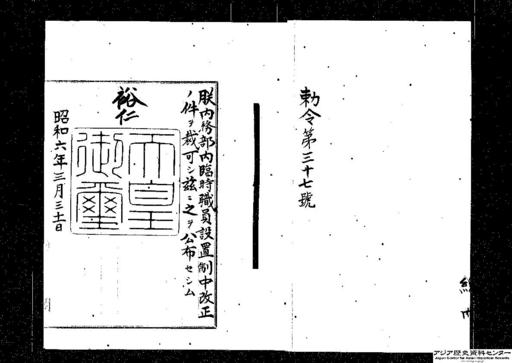 勅令第三十七號
朕内務部内臨時職員設置制中改正
ノ件ヲ裁可シ茲ニ之ヲ公布セシム
裕仁
天皇御璽
昭和六年三月三十一日
アジア歴史資料センター
Japan Center for Asian Historical Records